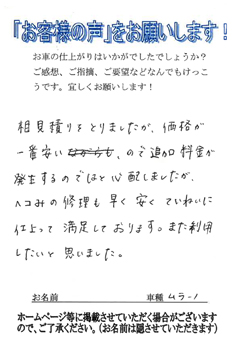 「お客様の声」をお願いします！
お車の仕上がりはいかがでしたでしょうか？
ご感想、ご指摘、ご要望などなんでもけっこ
うです。宜しくお願いします！
相見積りをとりましたが、価格が
一番安い、ので追加料金が
発生するのではと心配しましたが、
ヘコみの修理も早く安くていねいに
仕上って満足しております。また利用
したいと思いました。
お名前 車種 ムラーノ
ホームページ等に掲載させていただく場合がございます
ので、ご了承ください。（お名前は隠させていただきます）